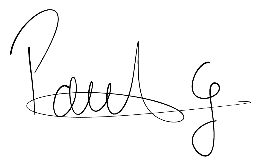 Paul G